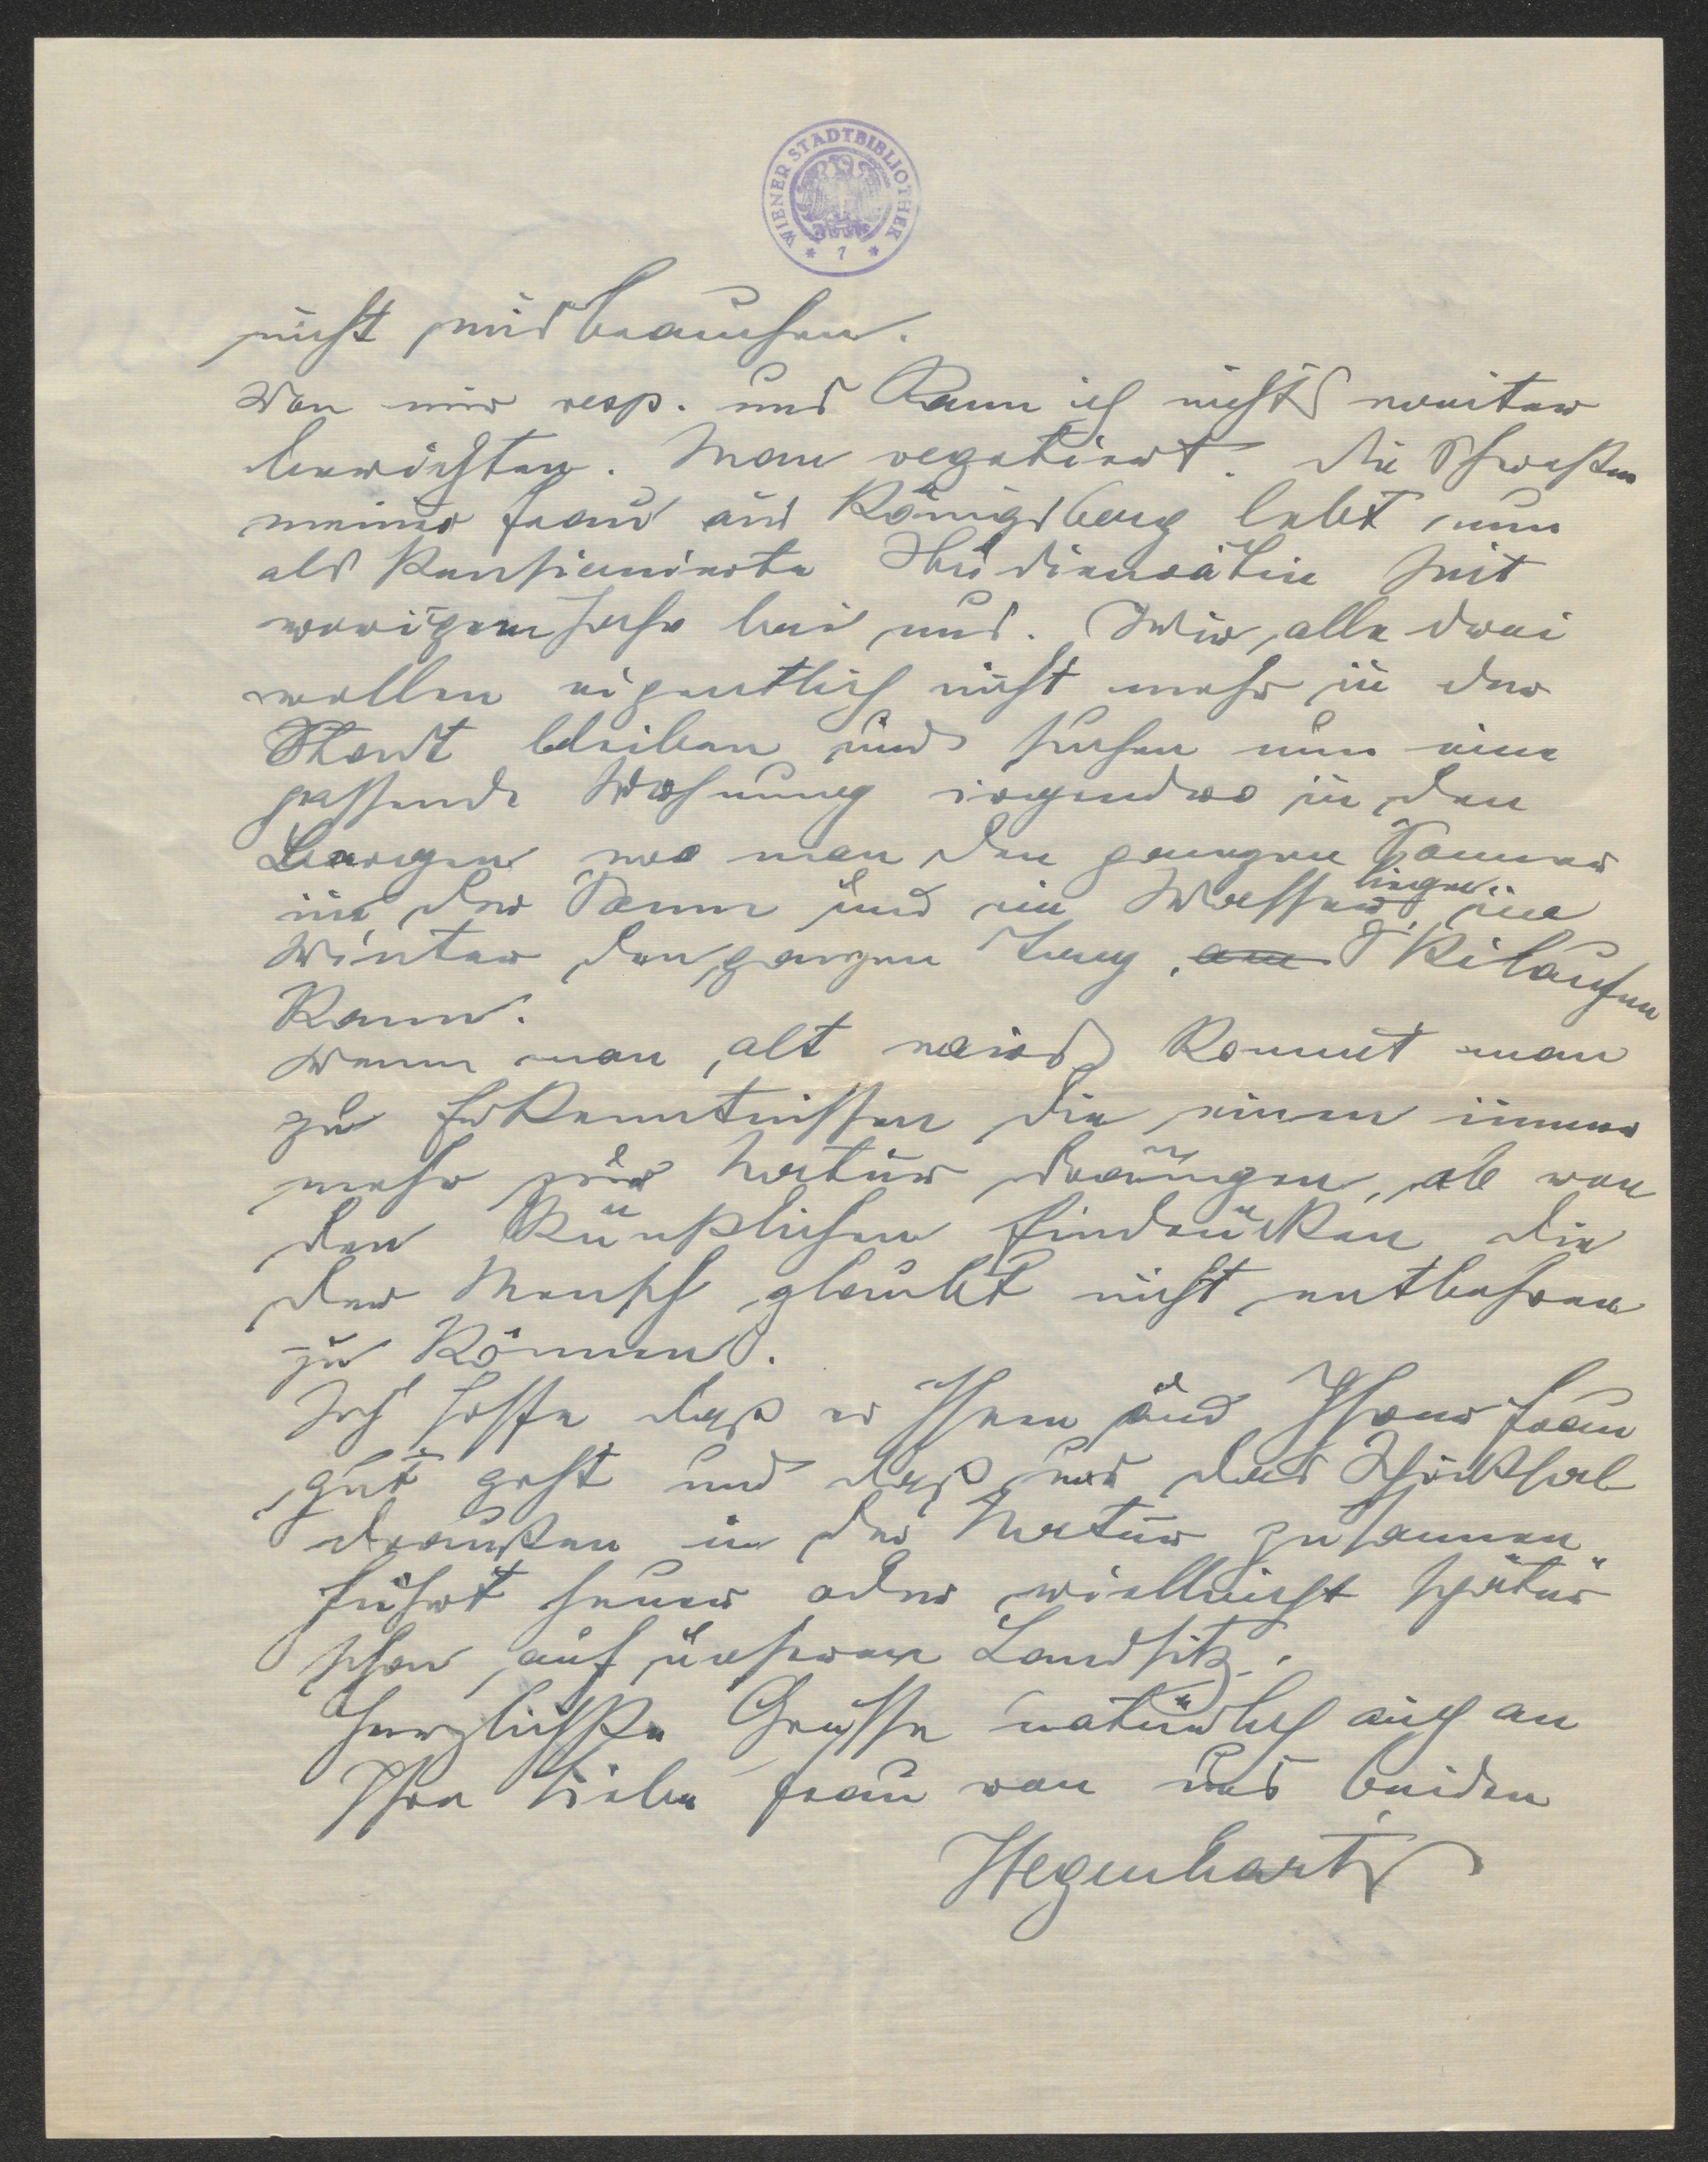 WIENER STADTBIBLIOTHEK
* 7 *
nicht misbrauchen.
Von mir resp. uns kann ich nichts weiter
berichten. Man vegetiert. Die Schwester
meiner Frau aus Königsberg lebt nun
als pensionierte Studienrätin seit
vorigem Jahr bei uns. Wir alle drei
wollen eigentlich nicht mehr in der
Stadt bleiben und suchen nun eine
passende Wohnung irgendwo in den
Bergen wo man den ganzen Sommer
in der Sonne und im Wasser liegen, im
Winter den ganzen Tag am Skilaufen
kann.
Wenn man alt wird kommt man
zu Erkenntnissen die einen immer
mehr zur Natur drängen, ab von
den künstlichen Eindrücken die
der Mensch glaubt nicht entbehren
zu können.
Ich hoffe daß es Ihnen und Ihrer Frau
gut geht und daß uns das Schicksal
draußen in der Natur zusammen
führt heuer oder vielleicht später
schon auf unserem Landsitz.
Herzlichste Grüsse natürlich auch an
Ihre liebe Frau von uns beiden
Hegenbarts